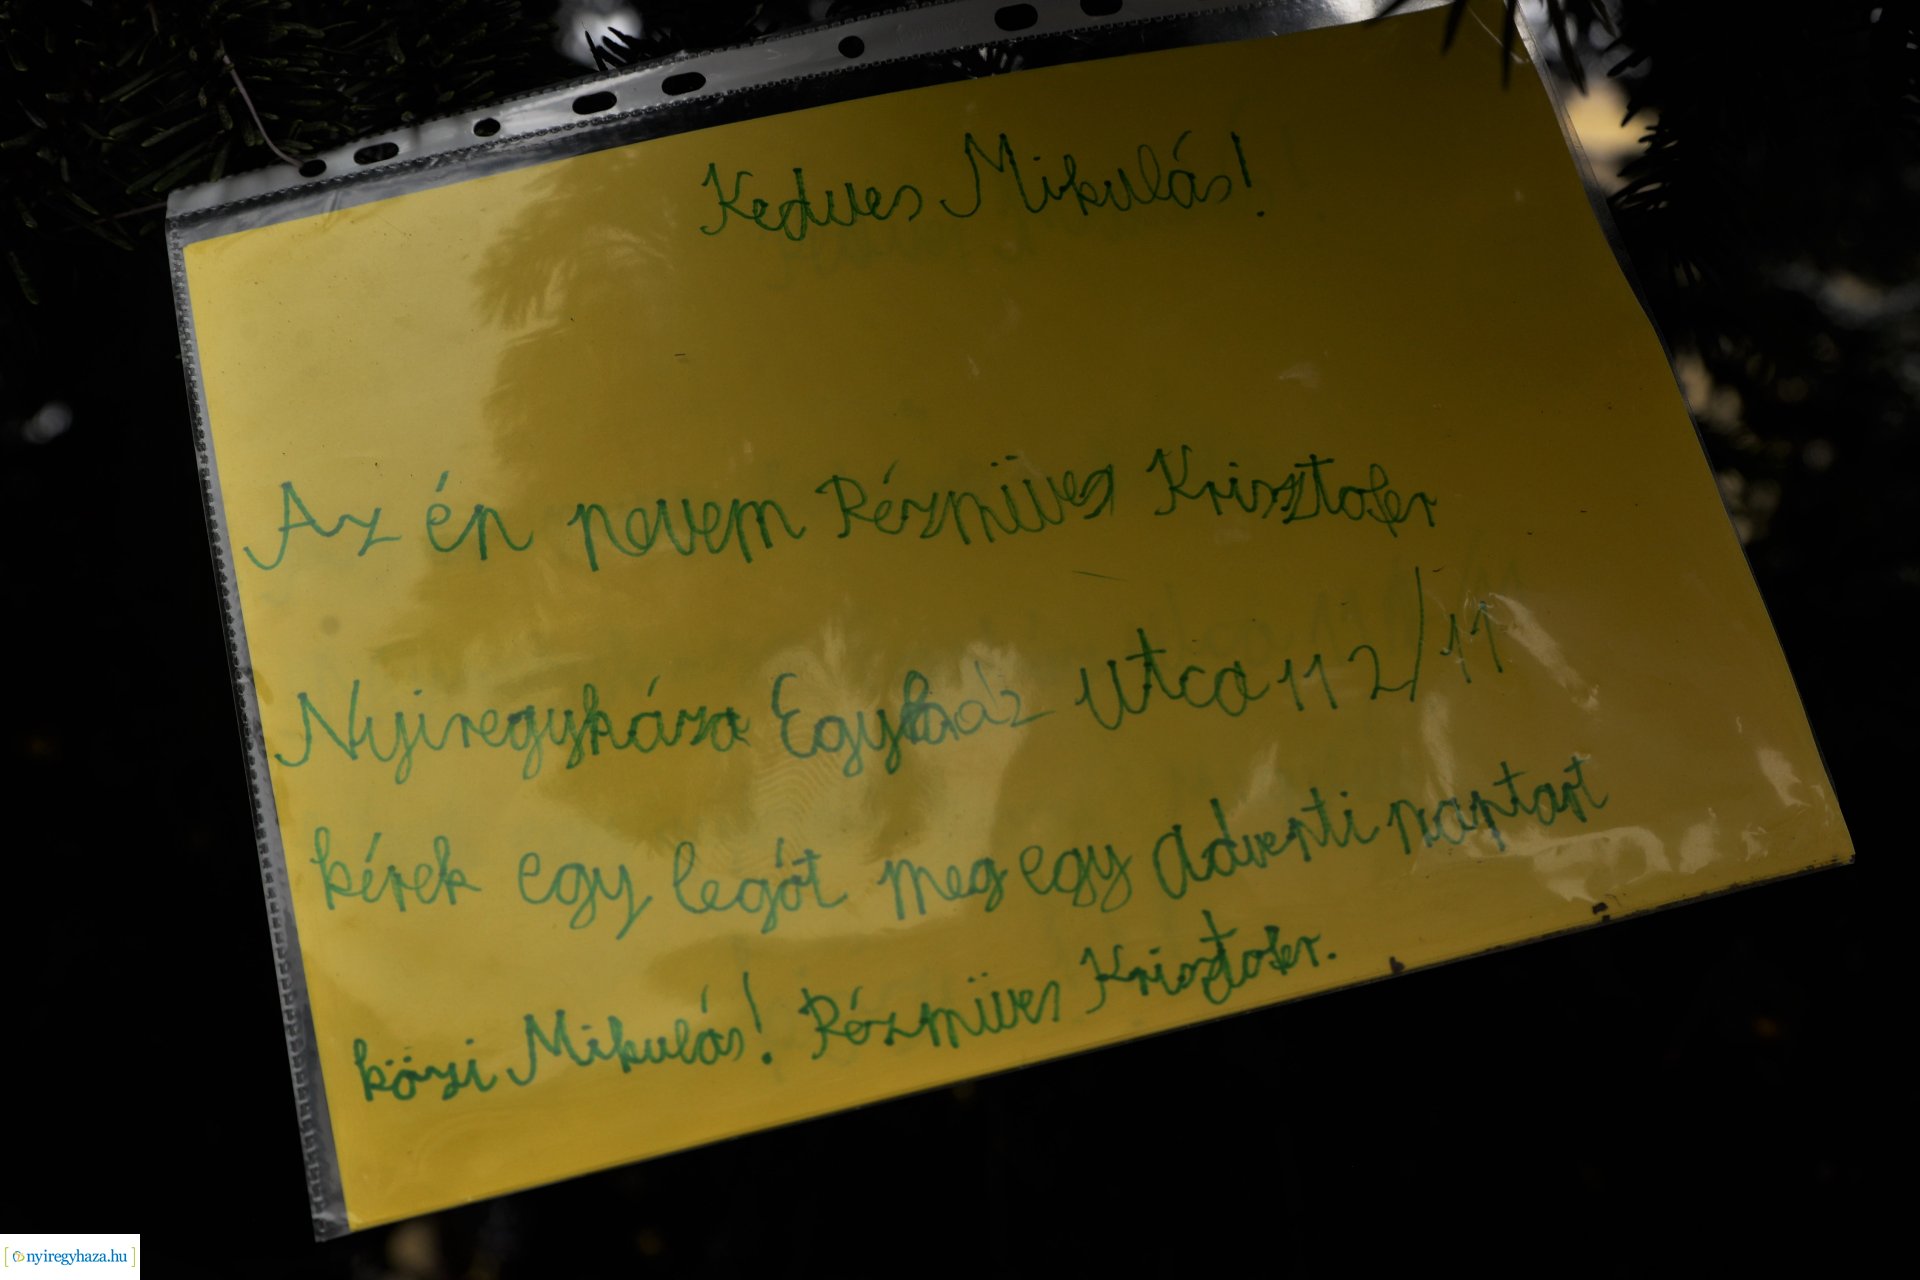 Kedves Mikulás!
Az én nevem Rézmüves Krisztofer
Nyiregyháza Egyház utca 112/11
kérek egy legót meg egy adventi naptart
közi Mikulás! Rézmüves Krisztofer.
nyiregyhaza.hu